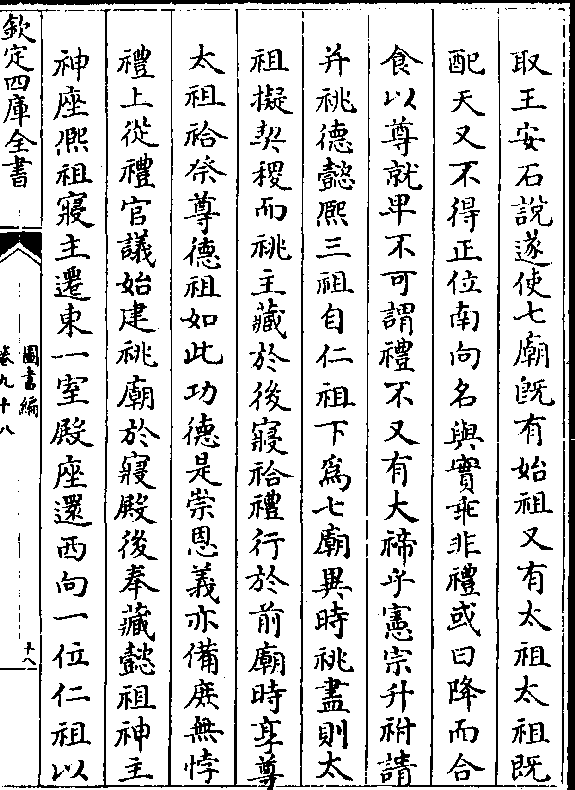 取王安石說遂使七廟既有始祖又有太祖太祖既
配天又不得正位南向名與實乖非禮或曰降而合
食以尊就卑不可謂禮不又有大禘乎憲宗升祔請
并祧德懿熙三祖自仁祖下為七廟異時祧盡則太
祖擬契稷而祧主藏於後寢祫禮行於前廟時享尊
太祖祫祭尊德祖如此功德是崇恩義亦備庶無悖
禮上從禮官議始建祧廟於寢殿後奉藏懿祖神主
神座熙祖寢主遷東一室殿座還西向一位仁祖以
欽定四庫全書
圖書編
卷九十八
十八